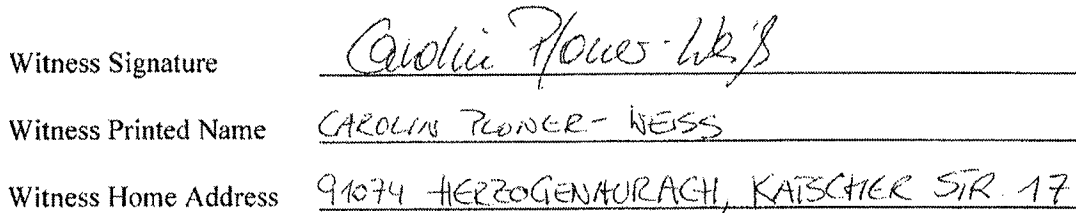 Witness Signature Carolin Ploner-Weiß
Witness Printed Name CAROLIN PLONER-WEISS
Witness Home Address 91074 HERZOGENAURACH, KATSCHER STR. 17